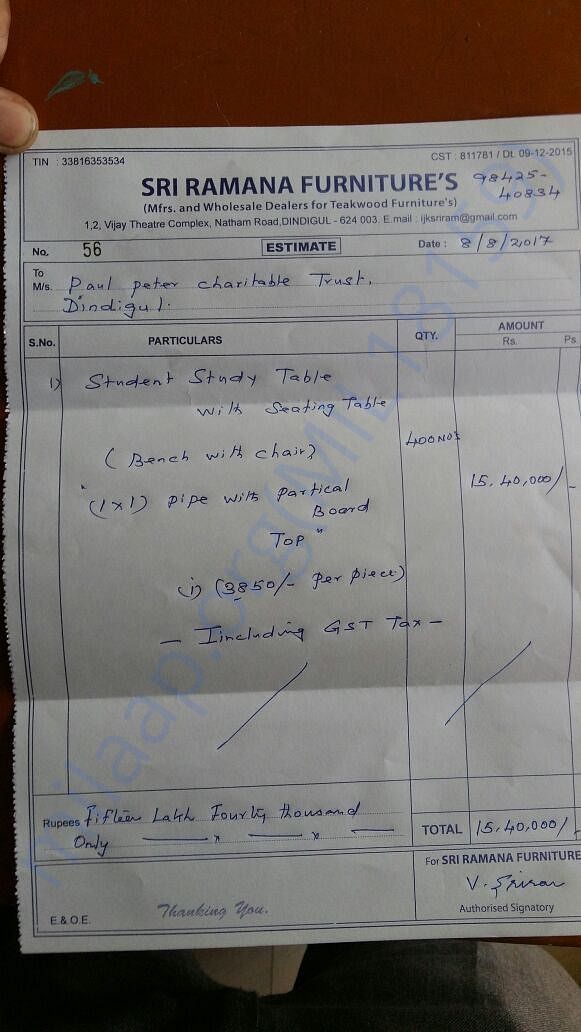 TIN : 33816353534
CST : 811781 / Dt. 09-12-2015
SRI RAMANA FURNITURE'S
98425-
40834
(Mfrs. and Wholesale Dealers for Teakwood Furniture's)
1,2, Vijay Theatre Complex, Natham Road, DINDIGUL - 624 003. E.mail : ijksriram@gmail.com
No. 56
ESTIMATE
Date : 8/8/2017
To
M/s. Paul Peter Charitable Trust,
Dindigul.
S.No. PARTICULARS QTY. AMOUNT
Rs. Ps
1) Student Study Table
With Seating Table
(Bench with chair)
400Nos
15,40,000/-
"(1x1) Pipe with Partical
Board
Top"
(i) (3850/- Per piece)
- Iincluding GST Tax -
Rupees Fifteen Lakh Fourty thousand
Only
TOTAL 15,40,000/-
For SRI RAMANA FURNITURE
Authorised Signatory
E & O.E.
Thanking You.